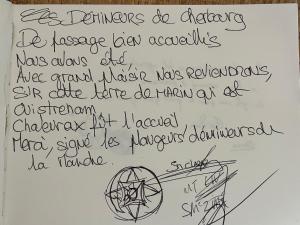 Les Démineurs de cherbourg
De passage bien accueillis
Nous avons été,
Avec grand plaisir Nous Reviendrons,
SUR cette terre de MARIN qui est
Ouistreham
Chaleureux fût l'accueil
Merci, signé les plongeurs démineurs de
la Manche.